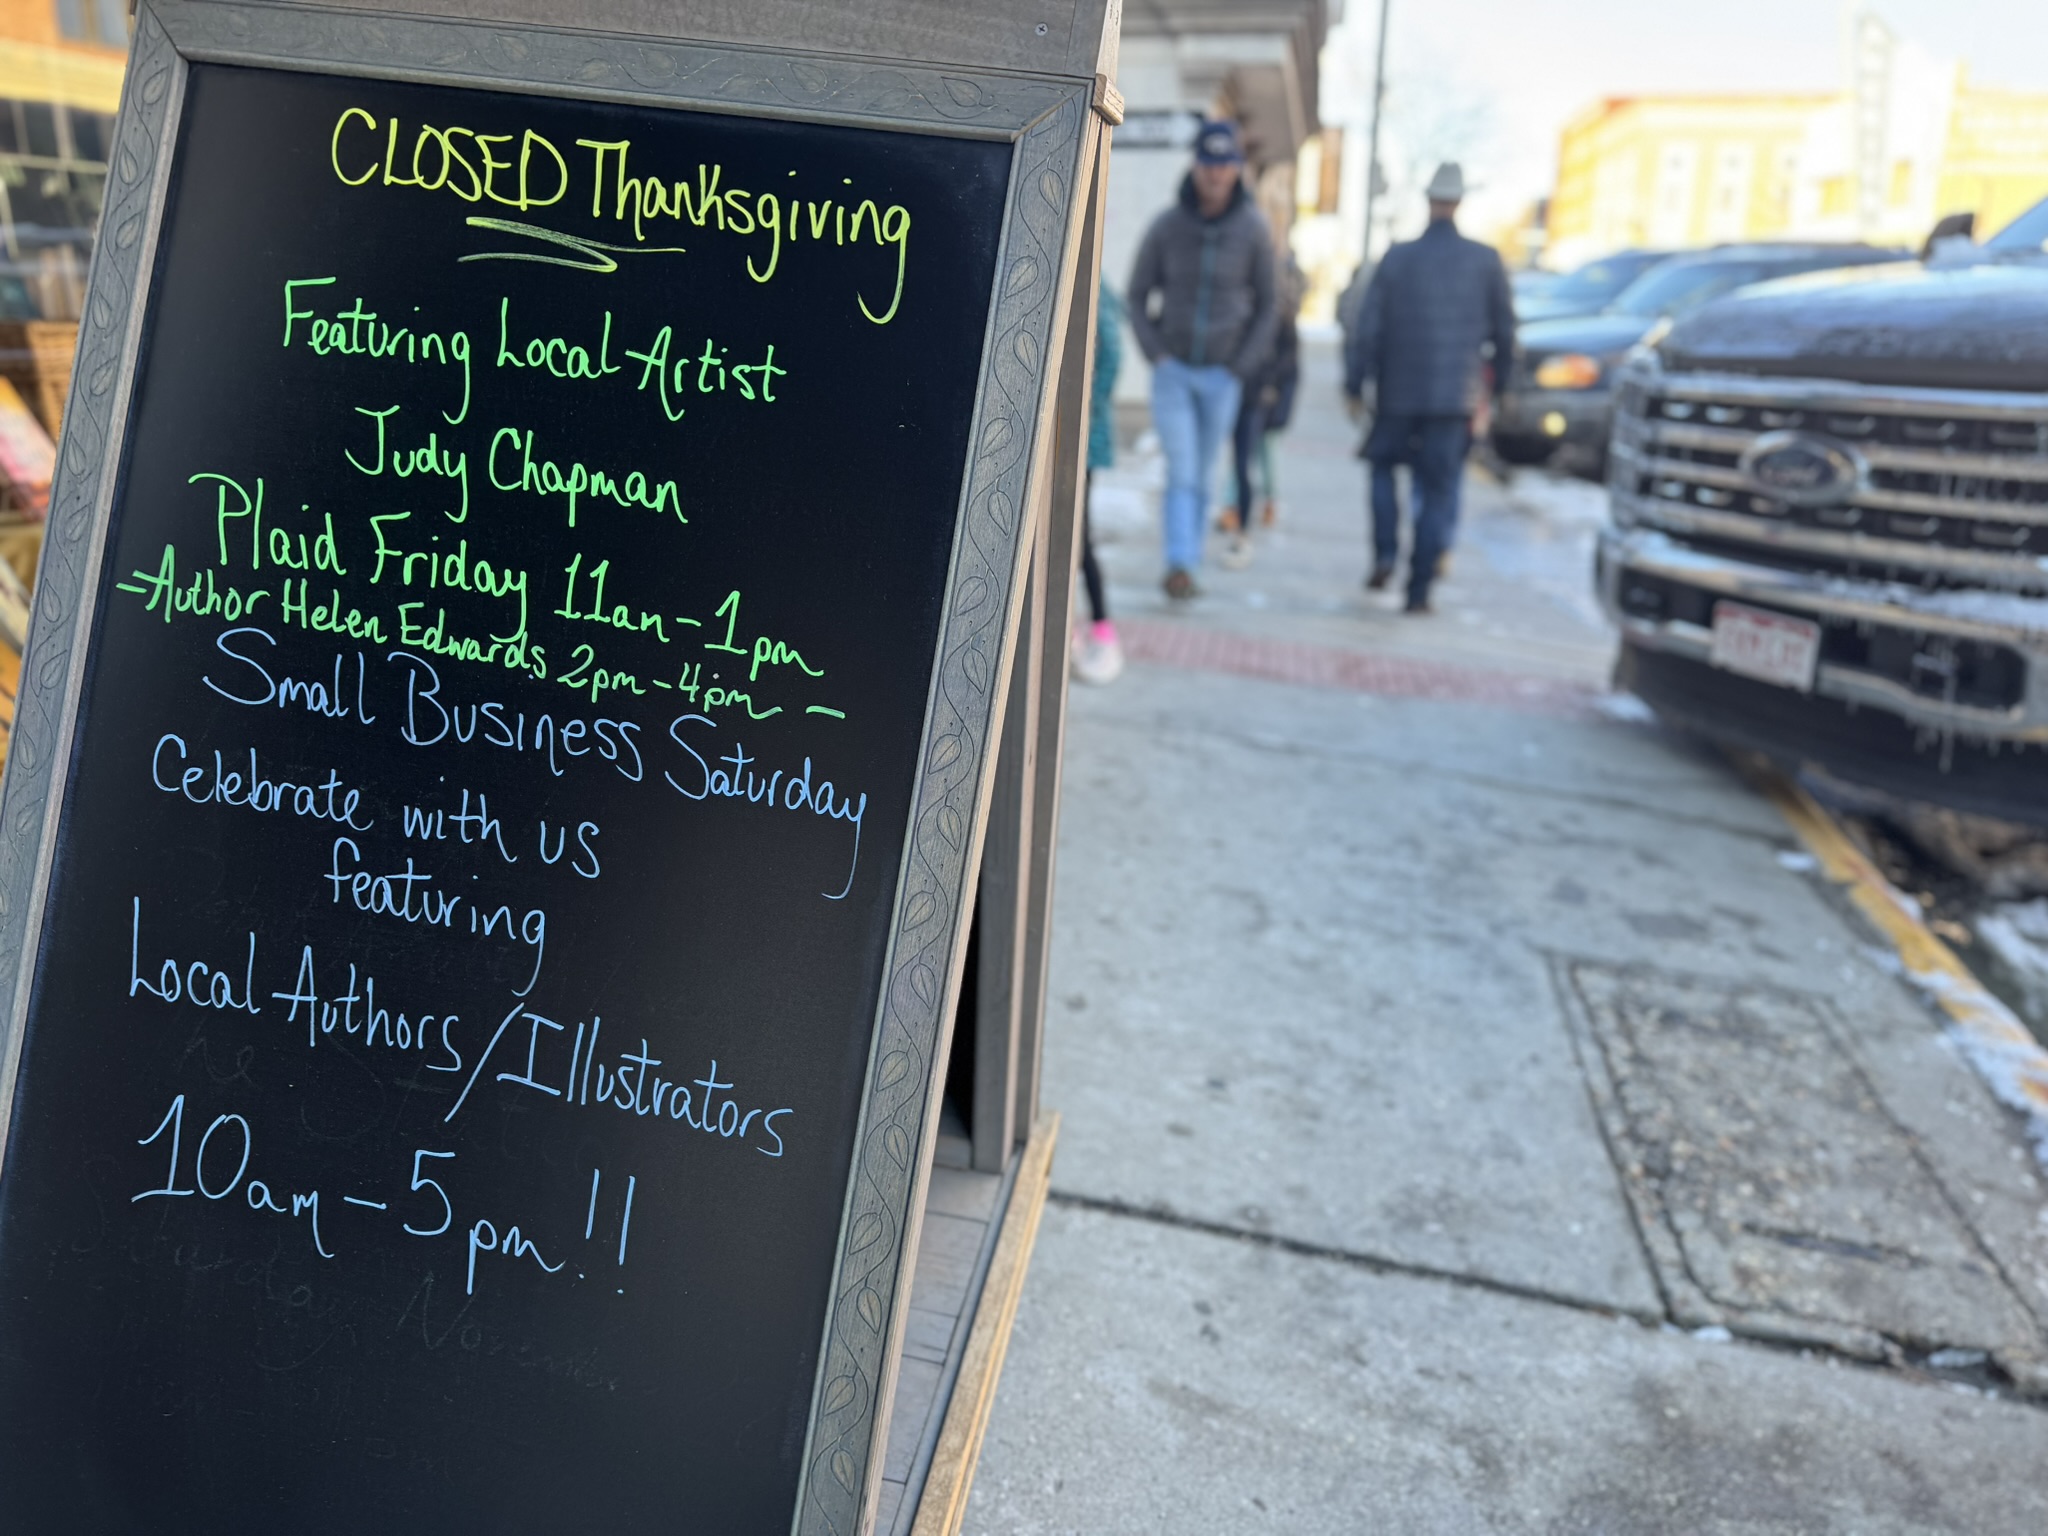 CLOSED Thanksgiving
Featuring Local Artist
Judy Chapman
Plaid Friday 11am-1pm
-Author Helen Edwards 2pm-4pm -
Small Business Saturday
Celebrate with us
featuring
Local Authors/Illustrators
10am-5pm!!
Ford